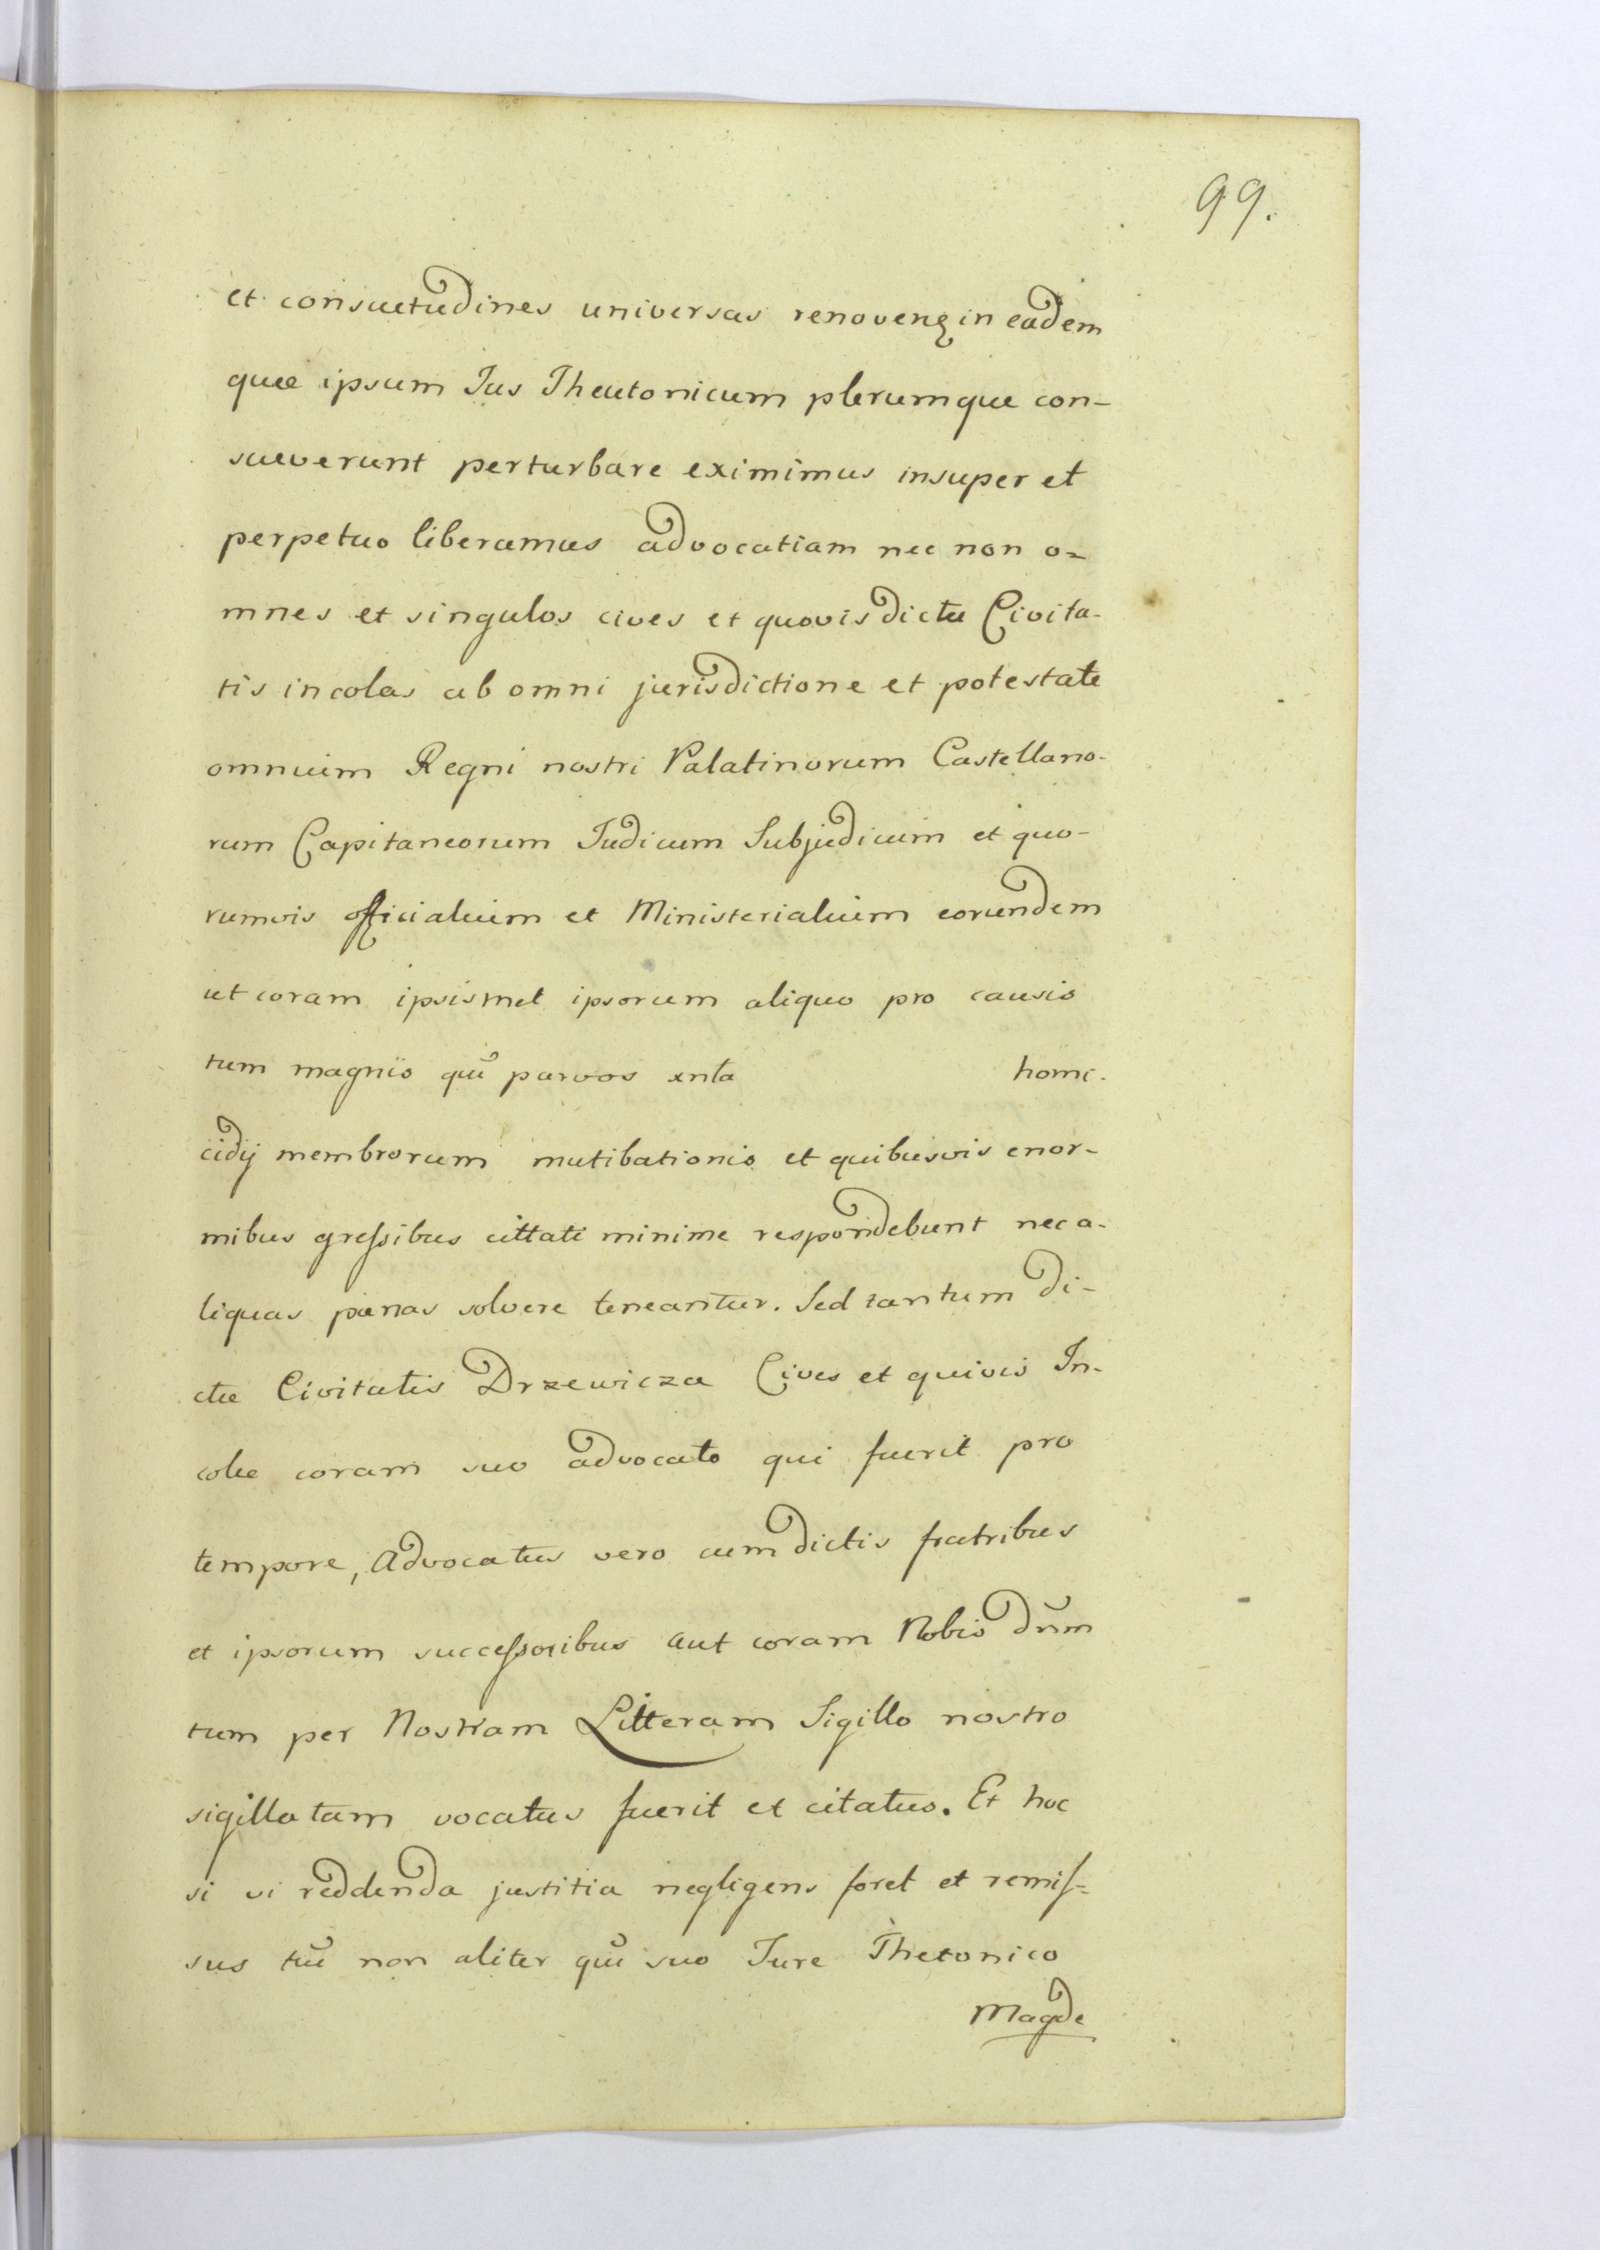 99.
et consuetudines universas renovenz in eadem
quæ ipsum Jus Theutonicum plerumque con-
sueverunt perturbare eximimus insuper et
perpetuo liberamus advocatiam nec non o=
mnes et singulos cives et quovis dictæ Civita-
tis incolas ab omni jurisdictione et potestate
omnium Regni nostri Palatinorum Castellano-
rum Capitaneorum Judicum Subjudicum et quo-
rumvis officialium et Ministerialium eorundem
ut coram ipsismet ipsorum aliquo pro causis
tum magnis qũ parvos xnta homi-
cidij membrorum mutibationis et quibusvis enor-
mibus greſsibus cittati minime respondebunt nec a-
liquas pænas solvere teneantur. Sed tantum di-
ctæ Civitatis Drzewicza Cives et quivis In-
colæ coram suo advocato qui fuerit pro
tempore, Advocatus vero cum dictis fratribus
et ipsorum succeſsoribus aut coram Nobis dũm
tum per Nostram Litteram Sigillo nostro
sigillatam vocatus fuerit et citatus. Et hoc
si vi reddenda justitia negligens foret et remiſ-
sus tũ non aliter qũ suo Jure Thetonico
Magde